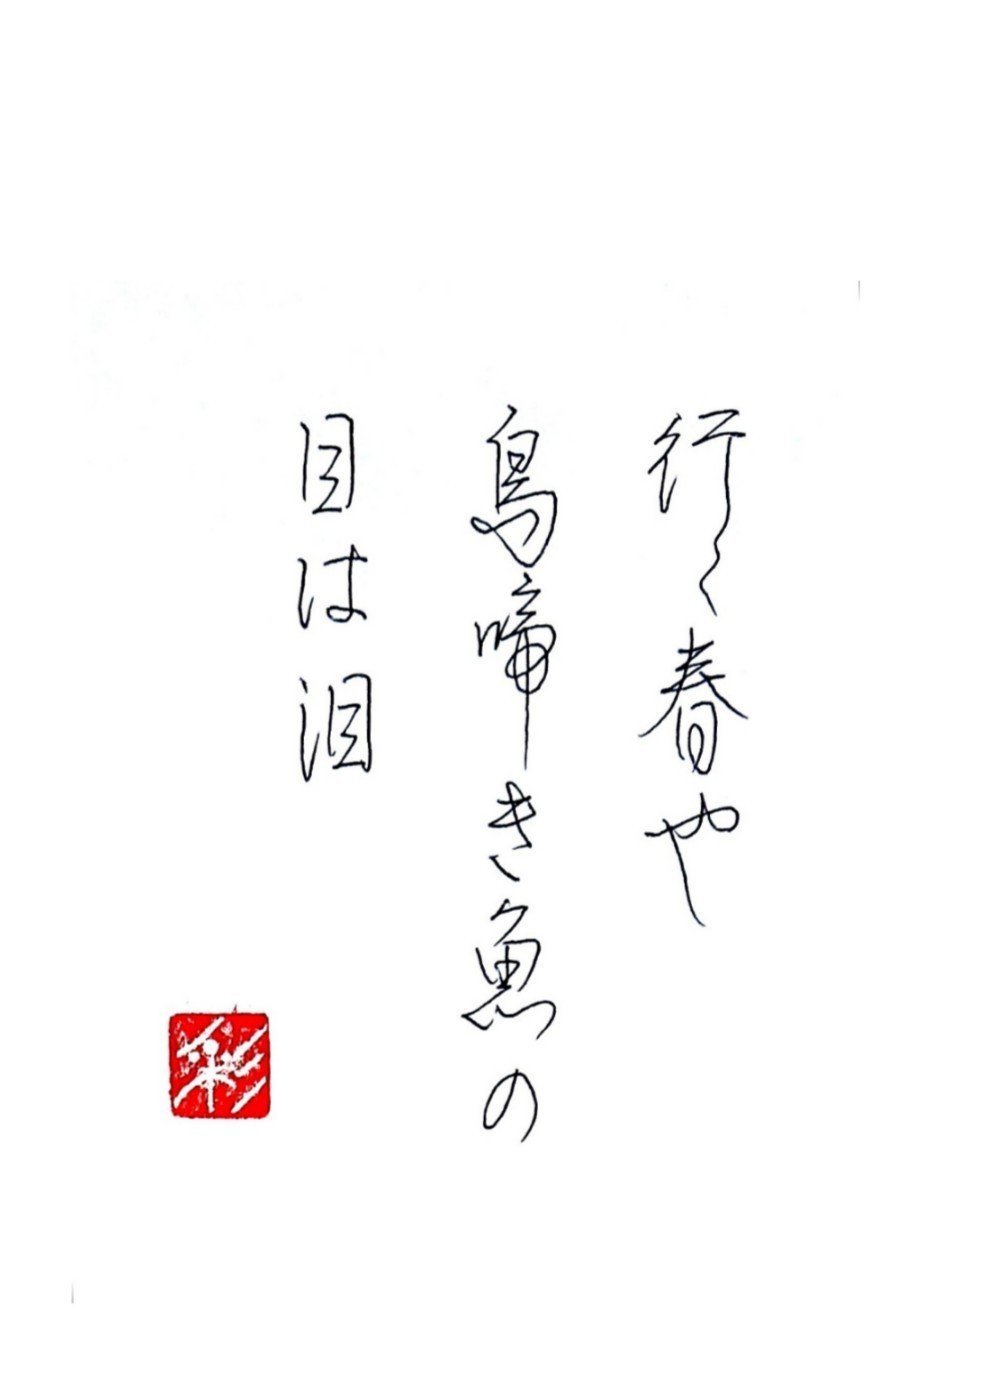 行く春や
鳥啼き魚の
目は泪
彩